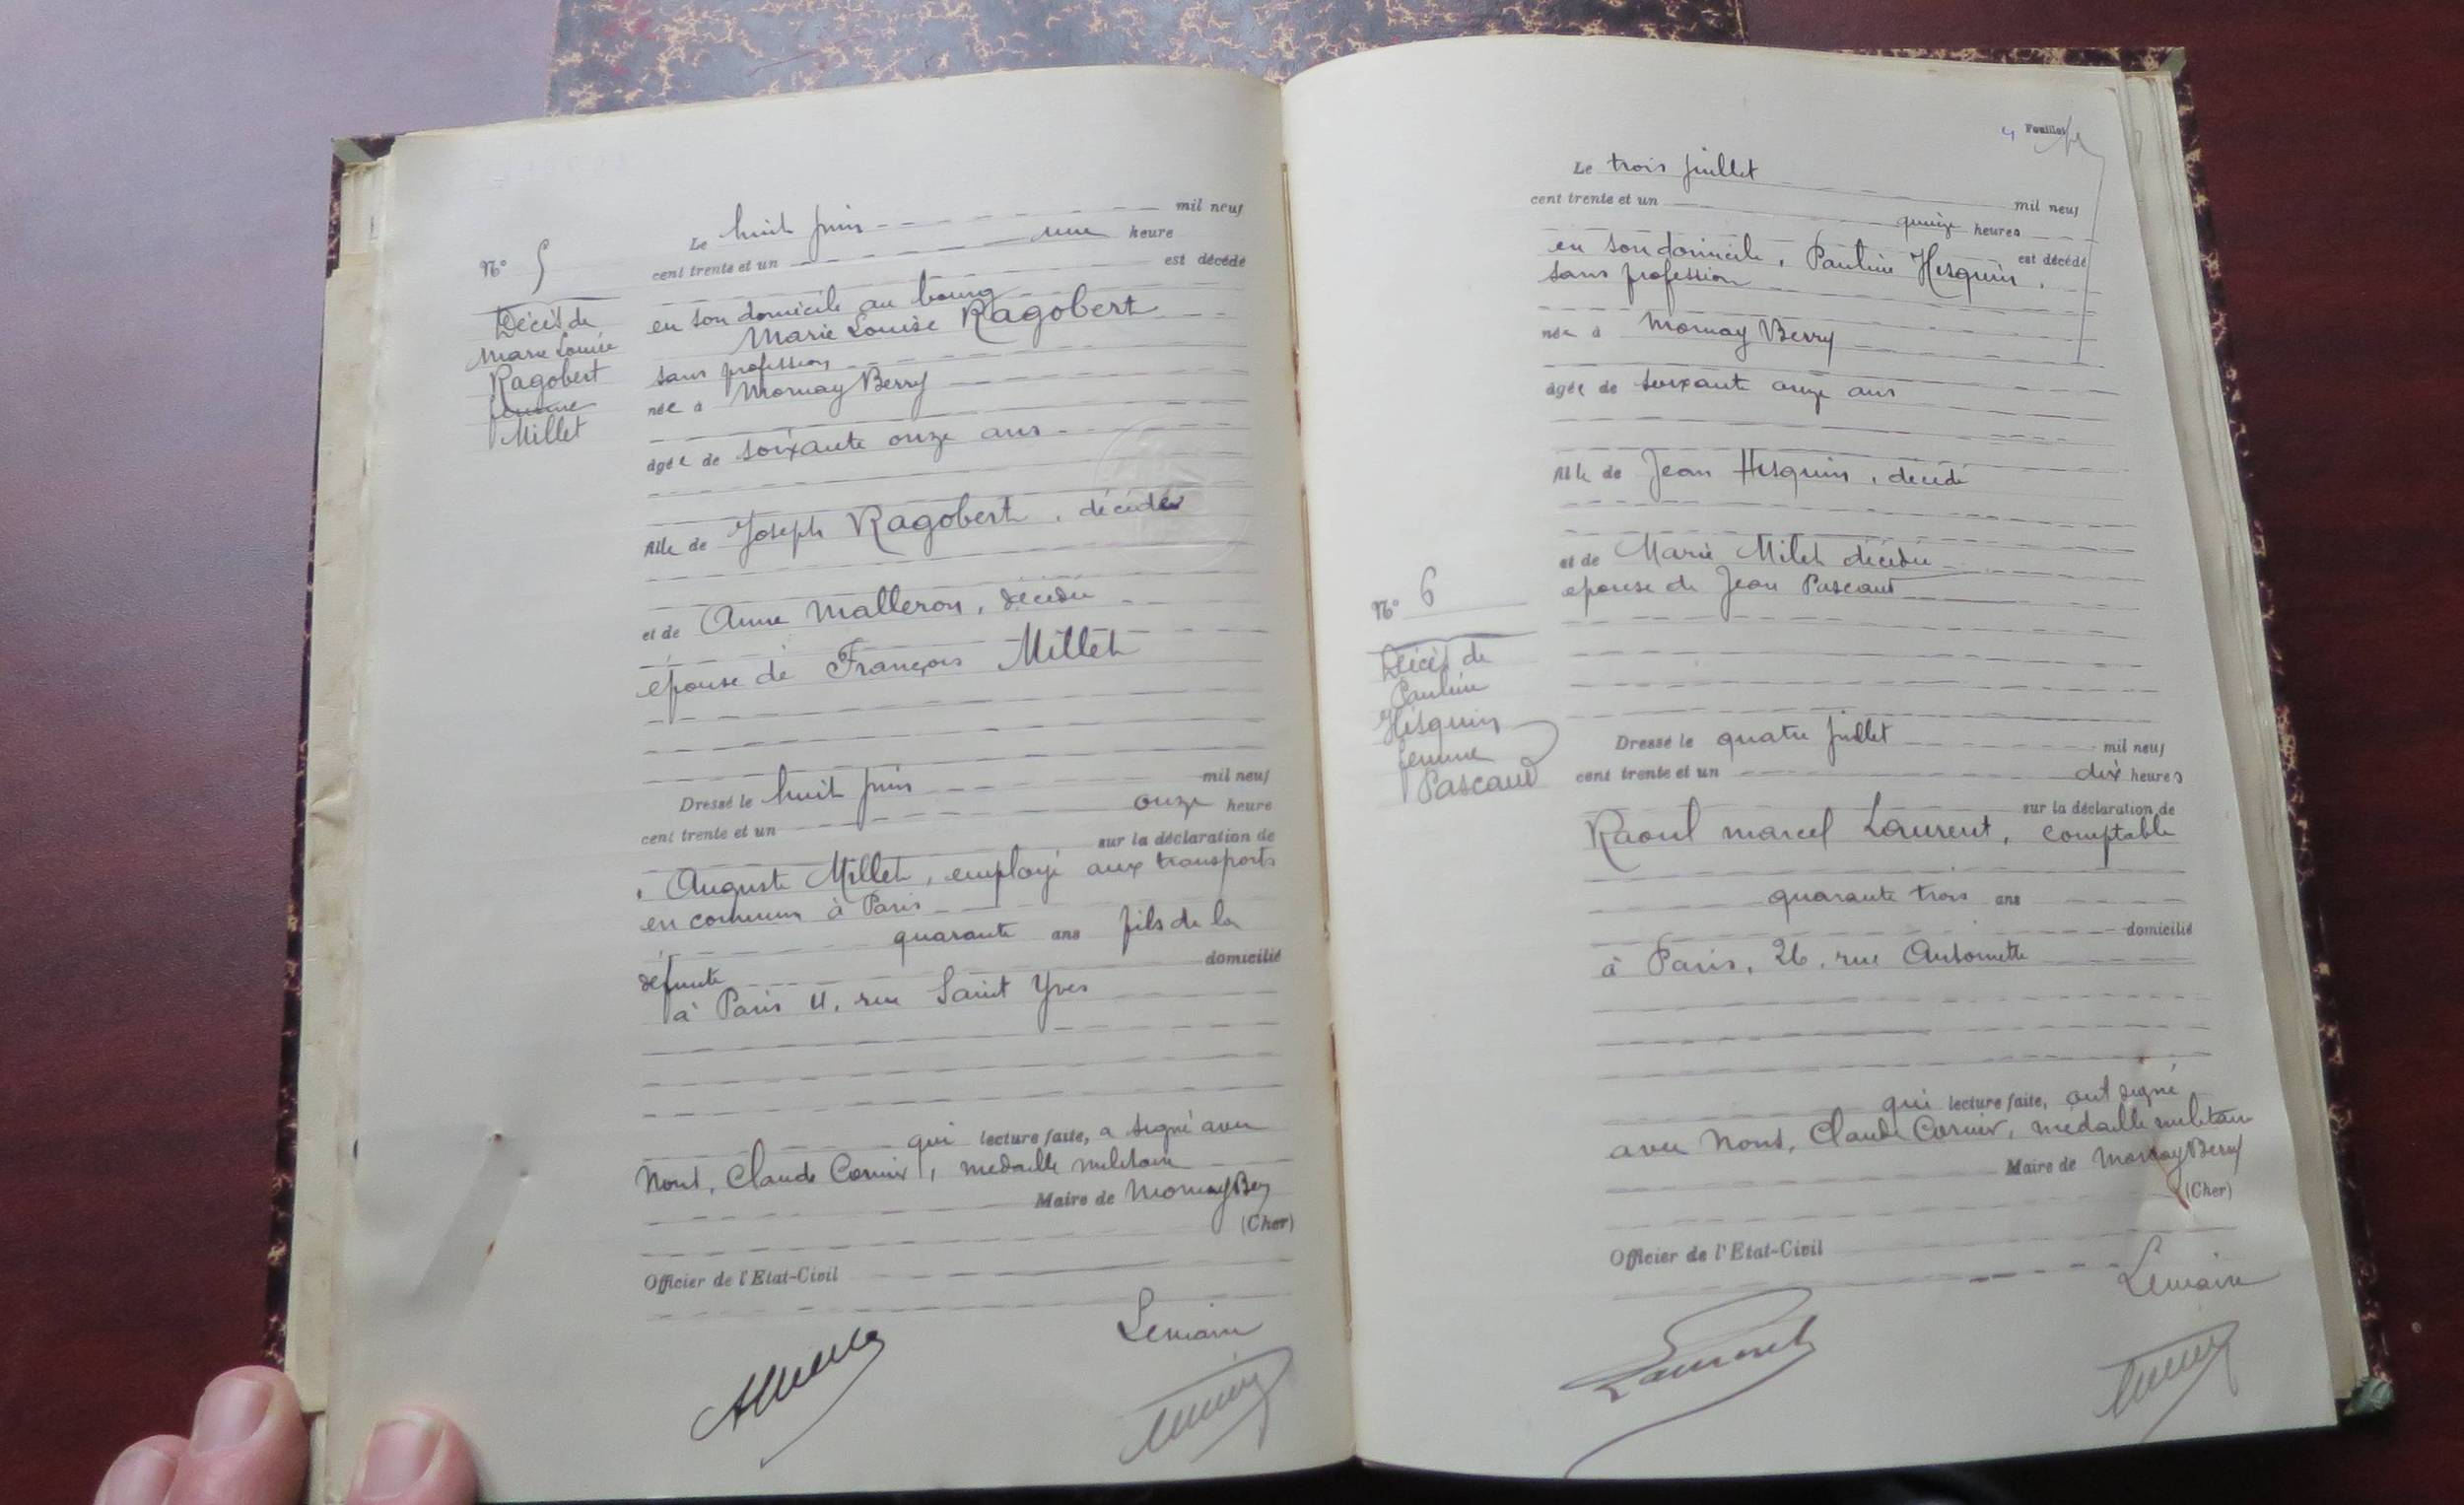 N° 5
Décès de
Marie Louise
Ragobert
femme
Millet
Le huit juin mil neuf
cent trente et un une heure
est décédé
en son domicile au bourg
Marie Louise Ragobert
sans profession
née à Mornay Berry
âgée de soixante onze ans
fille de Joseph Ragobert, décédé
et de Anne Malleron, décédée
épouse de François Millet
Dressé le huit juin mil neuf
cent trente et un onze heure
sur la déclaration de
Auguste Millet, employé aux transports
en commun à Paris
quarante ans fils de la
défunte domicilié
à Paris 11, rue Saint Yves
qui lecture faite, a signé avec
Nous, Claude Cornier, médaille militaire
Maire de Mornay Berry
(Cher)
Officier de l'Etat-Civil
Lemaire
4 Feuillet
Le trois juillet mil neuf
cent trente et un quinze heures
est décédé
en son domicile, Pauline Hisquin,
sans profession
née à Mornay Berry
âgée de soixante onze ans
fille de Jean Hisquin, décédé
et de Marie Milet décédée
épouse de Jean Pascaud
N° 6
Décès de
Pauline
Hisquin
femme
Pascaud
Dressé le quatre juillet mil neuf
cent trente et un dix heures
sur la déclaration de
Raoul Marcel Laurent, comptable
quarante trois ans
domicilié
à Paris, 26, rue Antoinette
qui lecture faite, ont signé
avec Nous, Claude Cornier, médaille militaire
Maire de Mornay Berry
(Cher)
Officier de l'Etat-Civil
Lemaire
Laurent